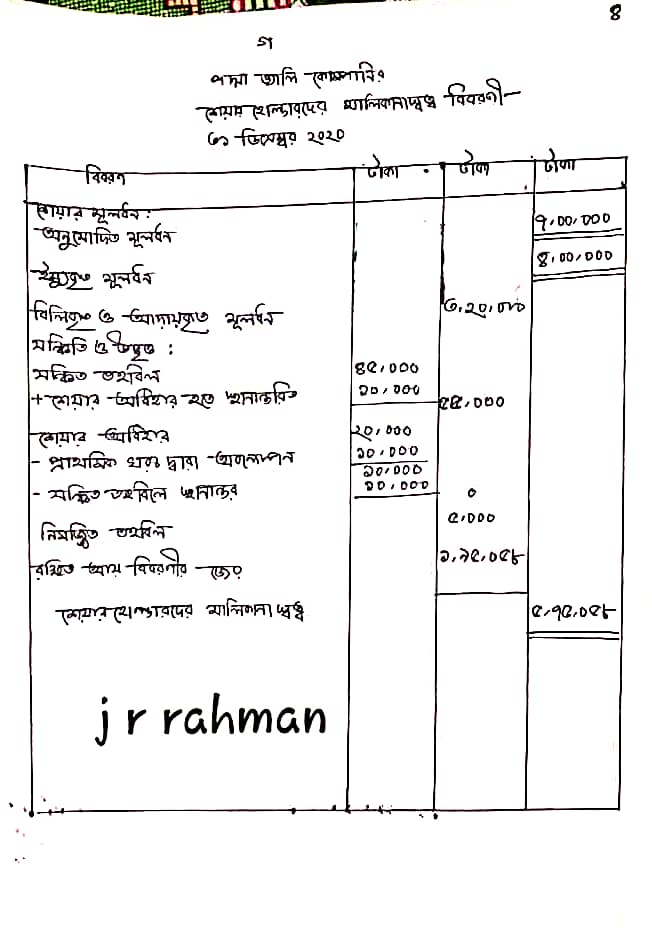 ৪
গ
পদ্মা ভ্যালি কোম্পানির
শেয়ার হোল্ডারদের মালিকানাস্বত্ব বিবরণী
৩১ ডিসেম্বর ২০২০
বিবরণ টাকা টাকা টাকা
শেয়ার মূলধন:
অনুমোদিত মূলধন ৭,০০,০০০
ইস্যুকৃত মূলধন ৪,০০,০০০
বিলিকৃত ও আদায়কৃত মূলধন ৩,২০,০০০
সঞ্চিতি ও উদ্বৃত্ত :
সঞ্চিত তহবিল ৪৫,০০০
+ শেয়ার অধিহার হতে স্থানান্তরিত ১০,০০০ ৫৫,০০০
শেয়ার অধিহার ২০,০০০
- প্রাথমিক খরচ দ্বারা অবলোপন ১০,০০০
১০,০০০
- সঞ্চিত তহবিলে স্থানান্তর ১০,০০০ ০
নিমজ্জিত তহবিল ৫,০০০
রক্ষিত আয় বিবরণীর জের ১,৯৫,০৫৮
শেয়ারহোল্ডারদের মালিকানা স্বত্ব ৫,৭৫,০৫৮
j r rahman